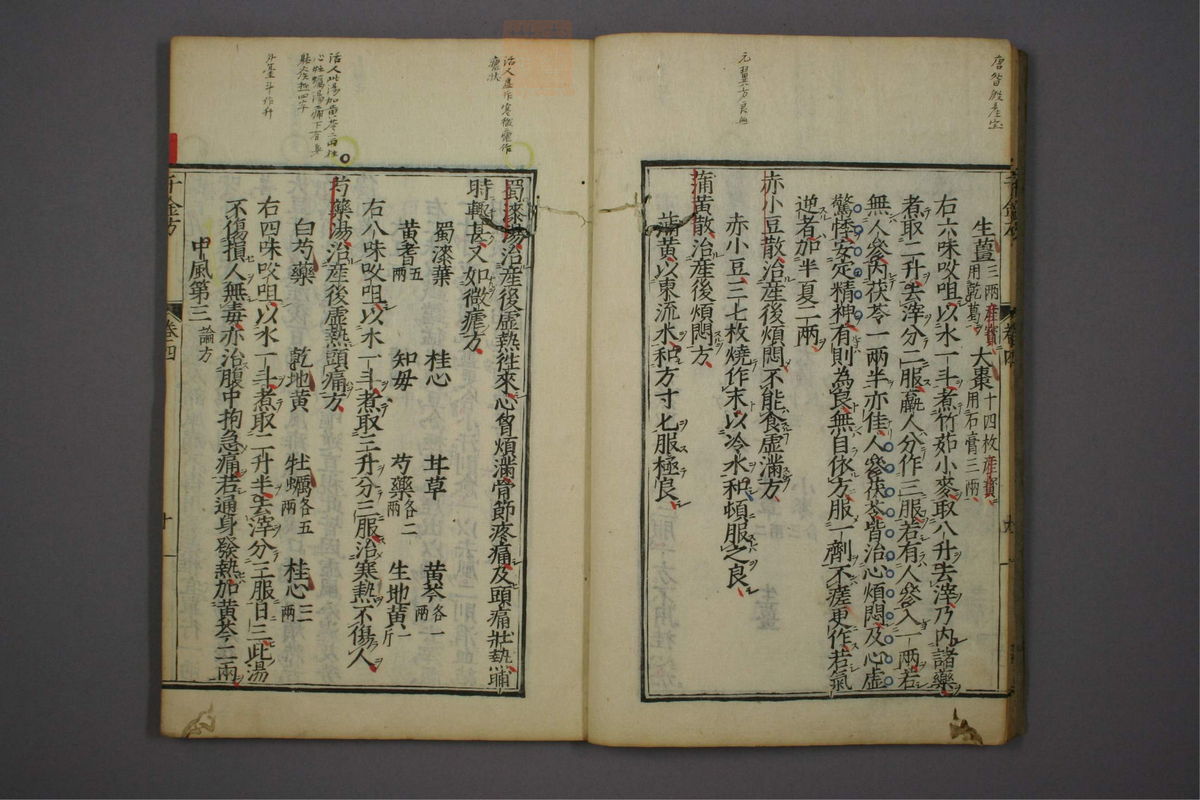 唐昝殷產宝
元翼方良無
生薑三兩產寶用乾葛 大棗十四枚產寶用石膏三兩
右六味㕮咀以水一斗煮竹茹小麥取八升去滓乃內諸藥
煮取二升去滓分二服羸人分作三服若有人參入一兩若
無人參內茯苓一兩半亦佳人參茯苓皆治心煩悶及心虛
驚悸安定精神有則為良無自依方服一劑不瘥更作若氣
逆者加半夏二兩
赤小豆散治產後煩悶不能食虛滿方
赤小豆三七枚燒作末以冷水和頓服之良
蒲黃散治產後煩悶方
蒲黃以東流水和方寸匕服極良
活人虛作寒微瘧作
瘧狀
活人此湯加黃芩二兩桂
心牡蠣湯痛下有身
外臺斗作升
蜀漆湯治產後虛熱往來心胷煩滿骨節疼痛及頭痛壯熱晡
時輙甚又如微瘧方
蜀漆葉 桂心 甘草 黃芩各一兩
黃耆五兩 知母 芍藥各二兩 生地黃一斤
右八味㕮咀以水一斗煮取三升分三服治寒熱不傷人
芍藥湯治產後虛熱頭痛方
白芍藥 乾地黃 牡蠣各五兩 桂心三兩
右四味㕮咀以水一斗煮取二升半去滓分三服日三此湯
不傷損人無毒亦治腹中拘急痛若通身發熱加黃芩二兩
中風第三論方
千金方 卷四 十